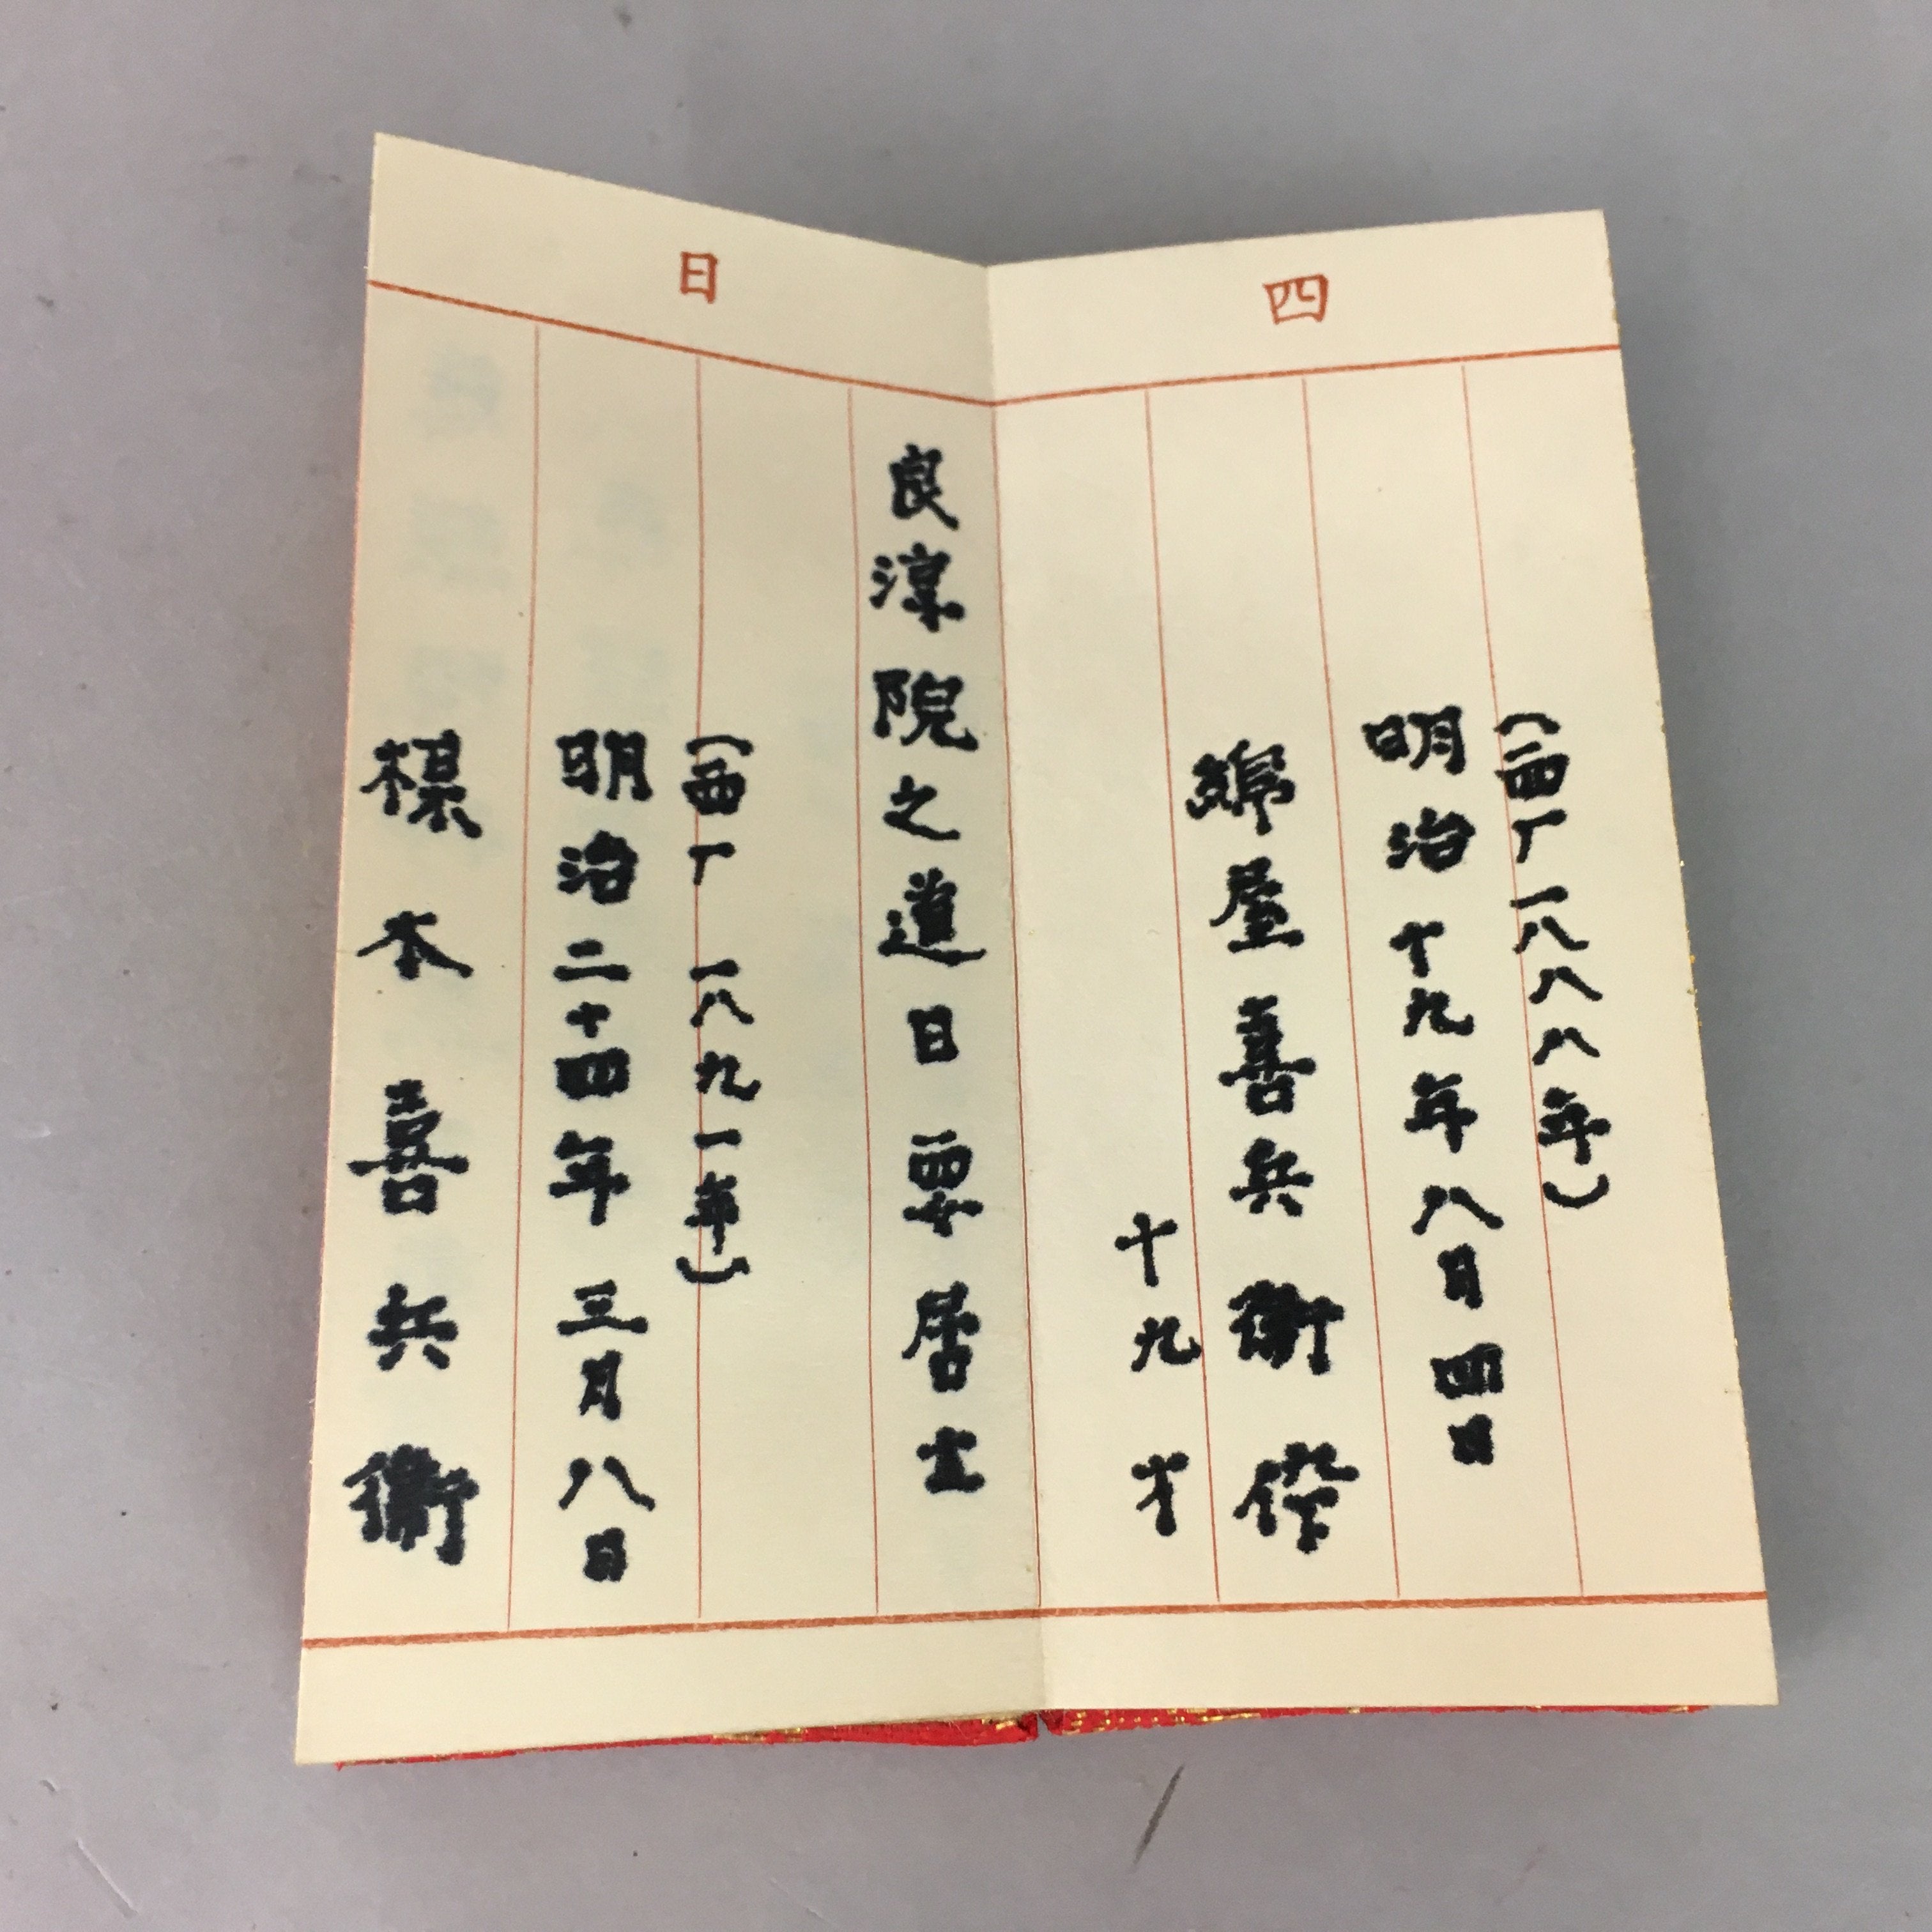 四日
(西厂一八八八年)
明治十九年八月四日
綿屋善兵衛倅
十九才
良淳院之道日要居士
(西厂一八九一年)
明治二十四年三月八日
楳本喜兵衛